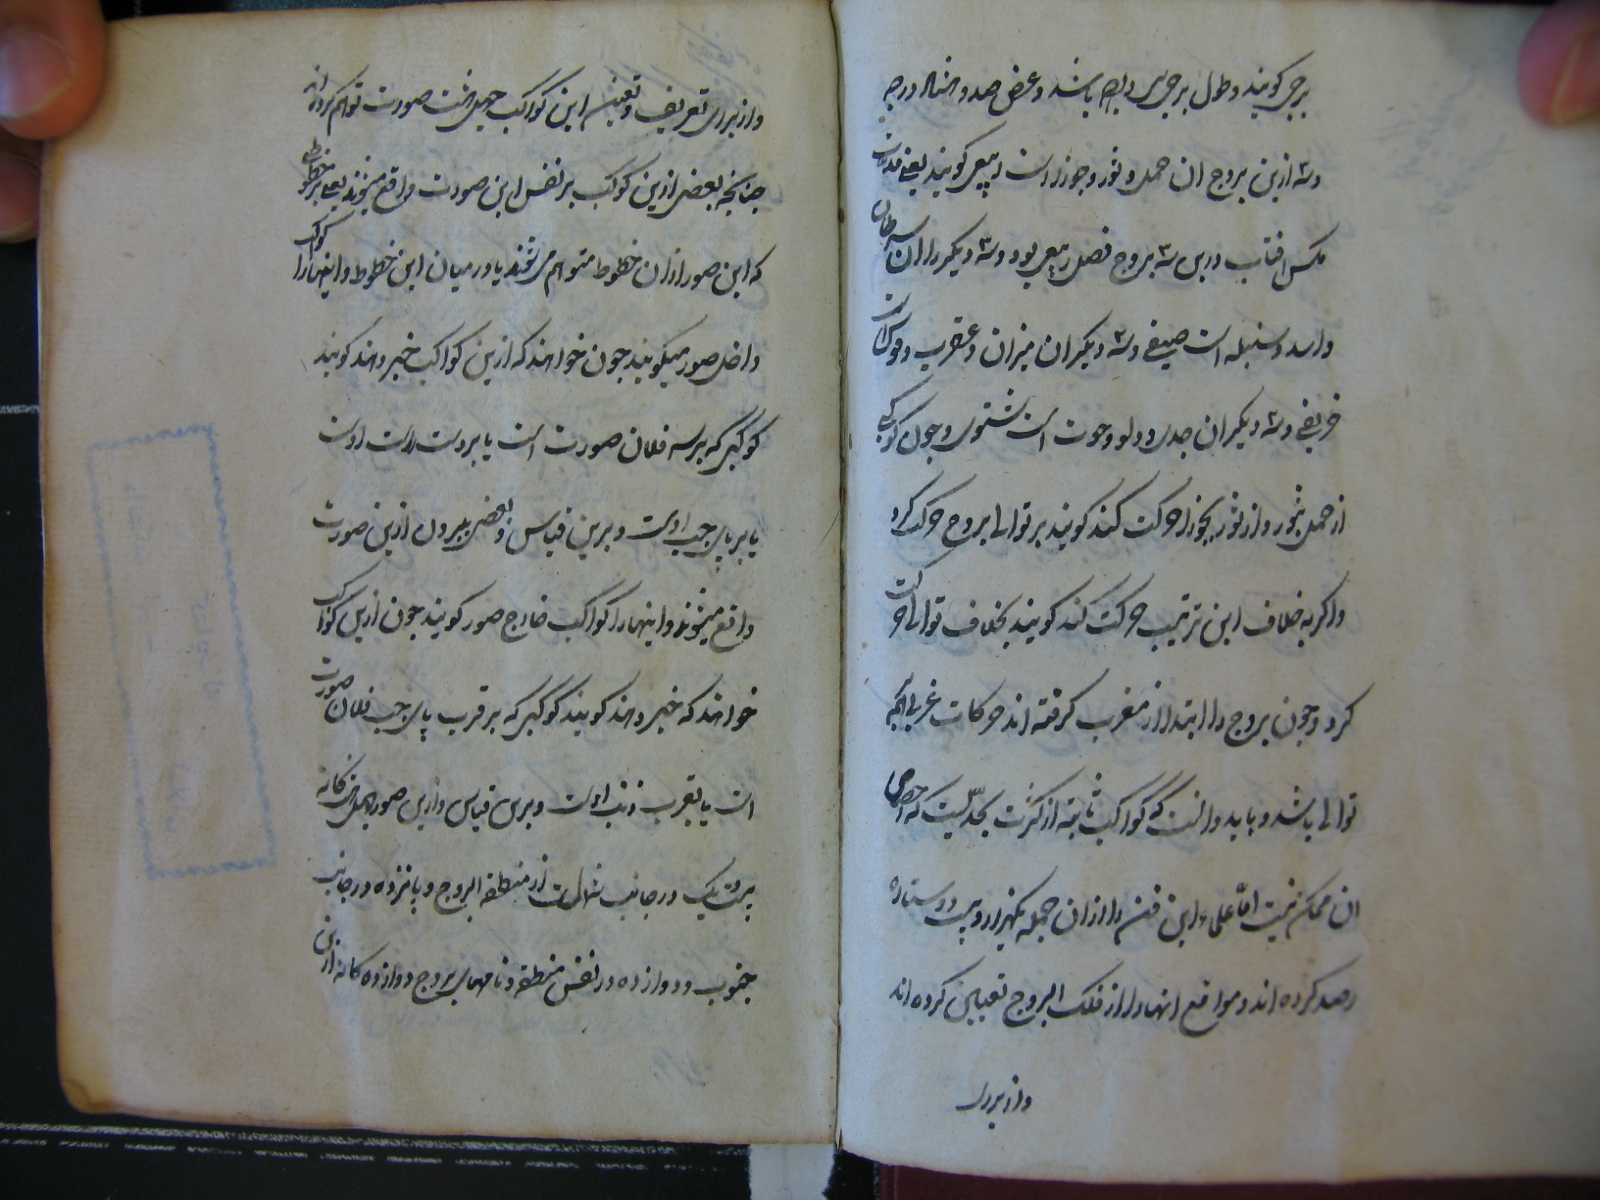 برجی کویند و طول برجی سی درجه باشد و عرض صد و هشتاد درجه
و سه ازین بروج ان حمل و ثور و جوزا است ربیعی کویند یعنی مدت
مکث افتاب درین سه بروج فصل ربیعی بود و سه دیکر را ان سرطان
و اسد و سنبله است صیفی و سه دیکر ان میزان و عقرب و قوس است
خریفی و سه دیکر ان جدی و دلو و حوت است شتوی و چون کوکبی
از حمل بثور و از ثور بجوزا حرکت کند کویند بر توالی بروج حرکت کرد
و اکر به خلاف این ترتیب حرکت کند کویند بخلاف توالی حرکت
کرد و چون بروج را ابتدا از مغرب کرفته اند حرکات غربی انچه
توالی باشد و باید دانست که کواکب ثابته از کثرت بحدیست که احصای
ان ممکن نیست اما علماء این فن را از ان جمله یکهزار و بیست و دو ستاره
رصد کرده اند و مواقع انها را از فلک البروج تعیین کرده اند
و از برای
و از برای تعریف و تعیین این کواکب چهل و هشت صورت توهم کرده اند
چنانچه بعضی ازین کوکب بر نفس این صورت واقع میشوند یعنی بر خطوطی
که این صور از ان خطوط متوهم می شوند یا در میان این خطوط و اینها را کواکب
داخل صور میکویند چون خواهند که ازین کواکب خبر دهند کویند
کوکبی که بر سه فلان صورت است یا بر دست راست اوست
یا بر پای چپ اوست و برین قیاس و بعضی بیرون ازین صورت
واقع میشوند و اینها را کواکب خارج صور کویند چون ازین کواکب
خواهند که خبر دهند کویند کوکبی که بر قرب پای چپ فلان صورت
است یا بقرب ذنب اوست و برین قیاس و ازین صور چهل و هشت کانه
بیست و یک در جانب شمالست از منطقه البروج و پانزده در جانب
جنوب و دوازده در نفس منطقه و نامهای بروج دوازده کانه ازین